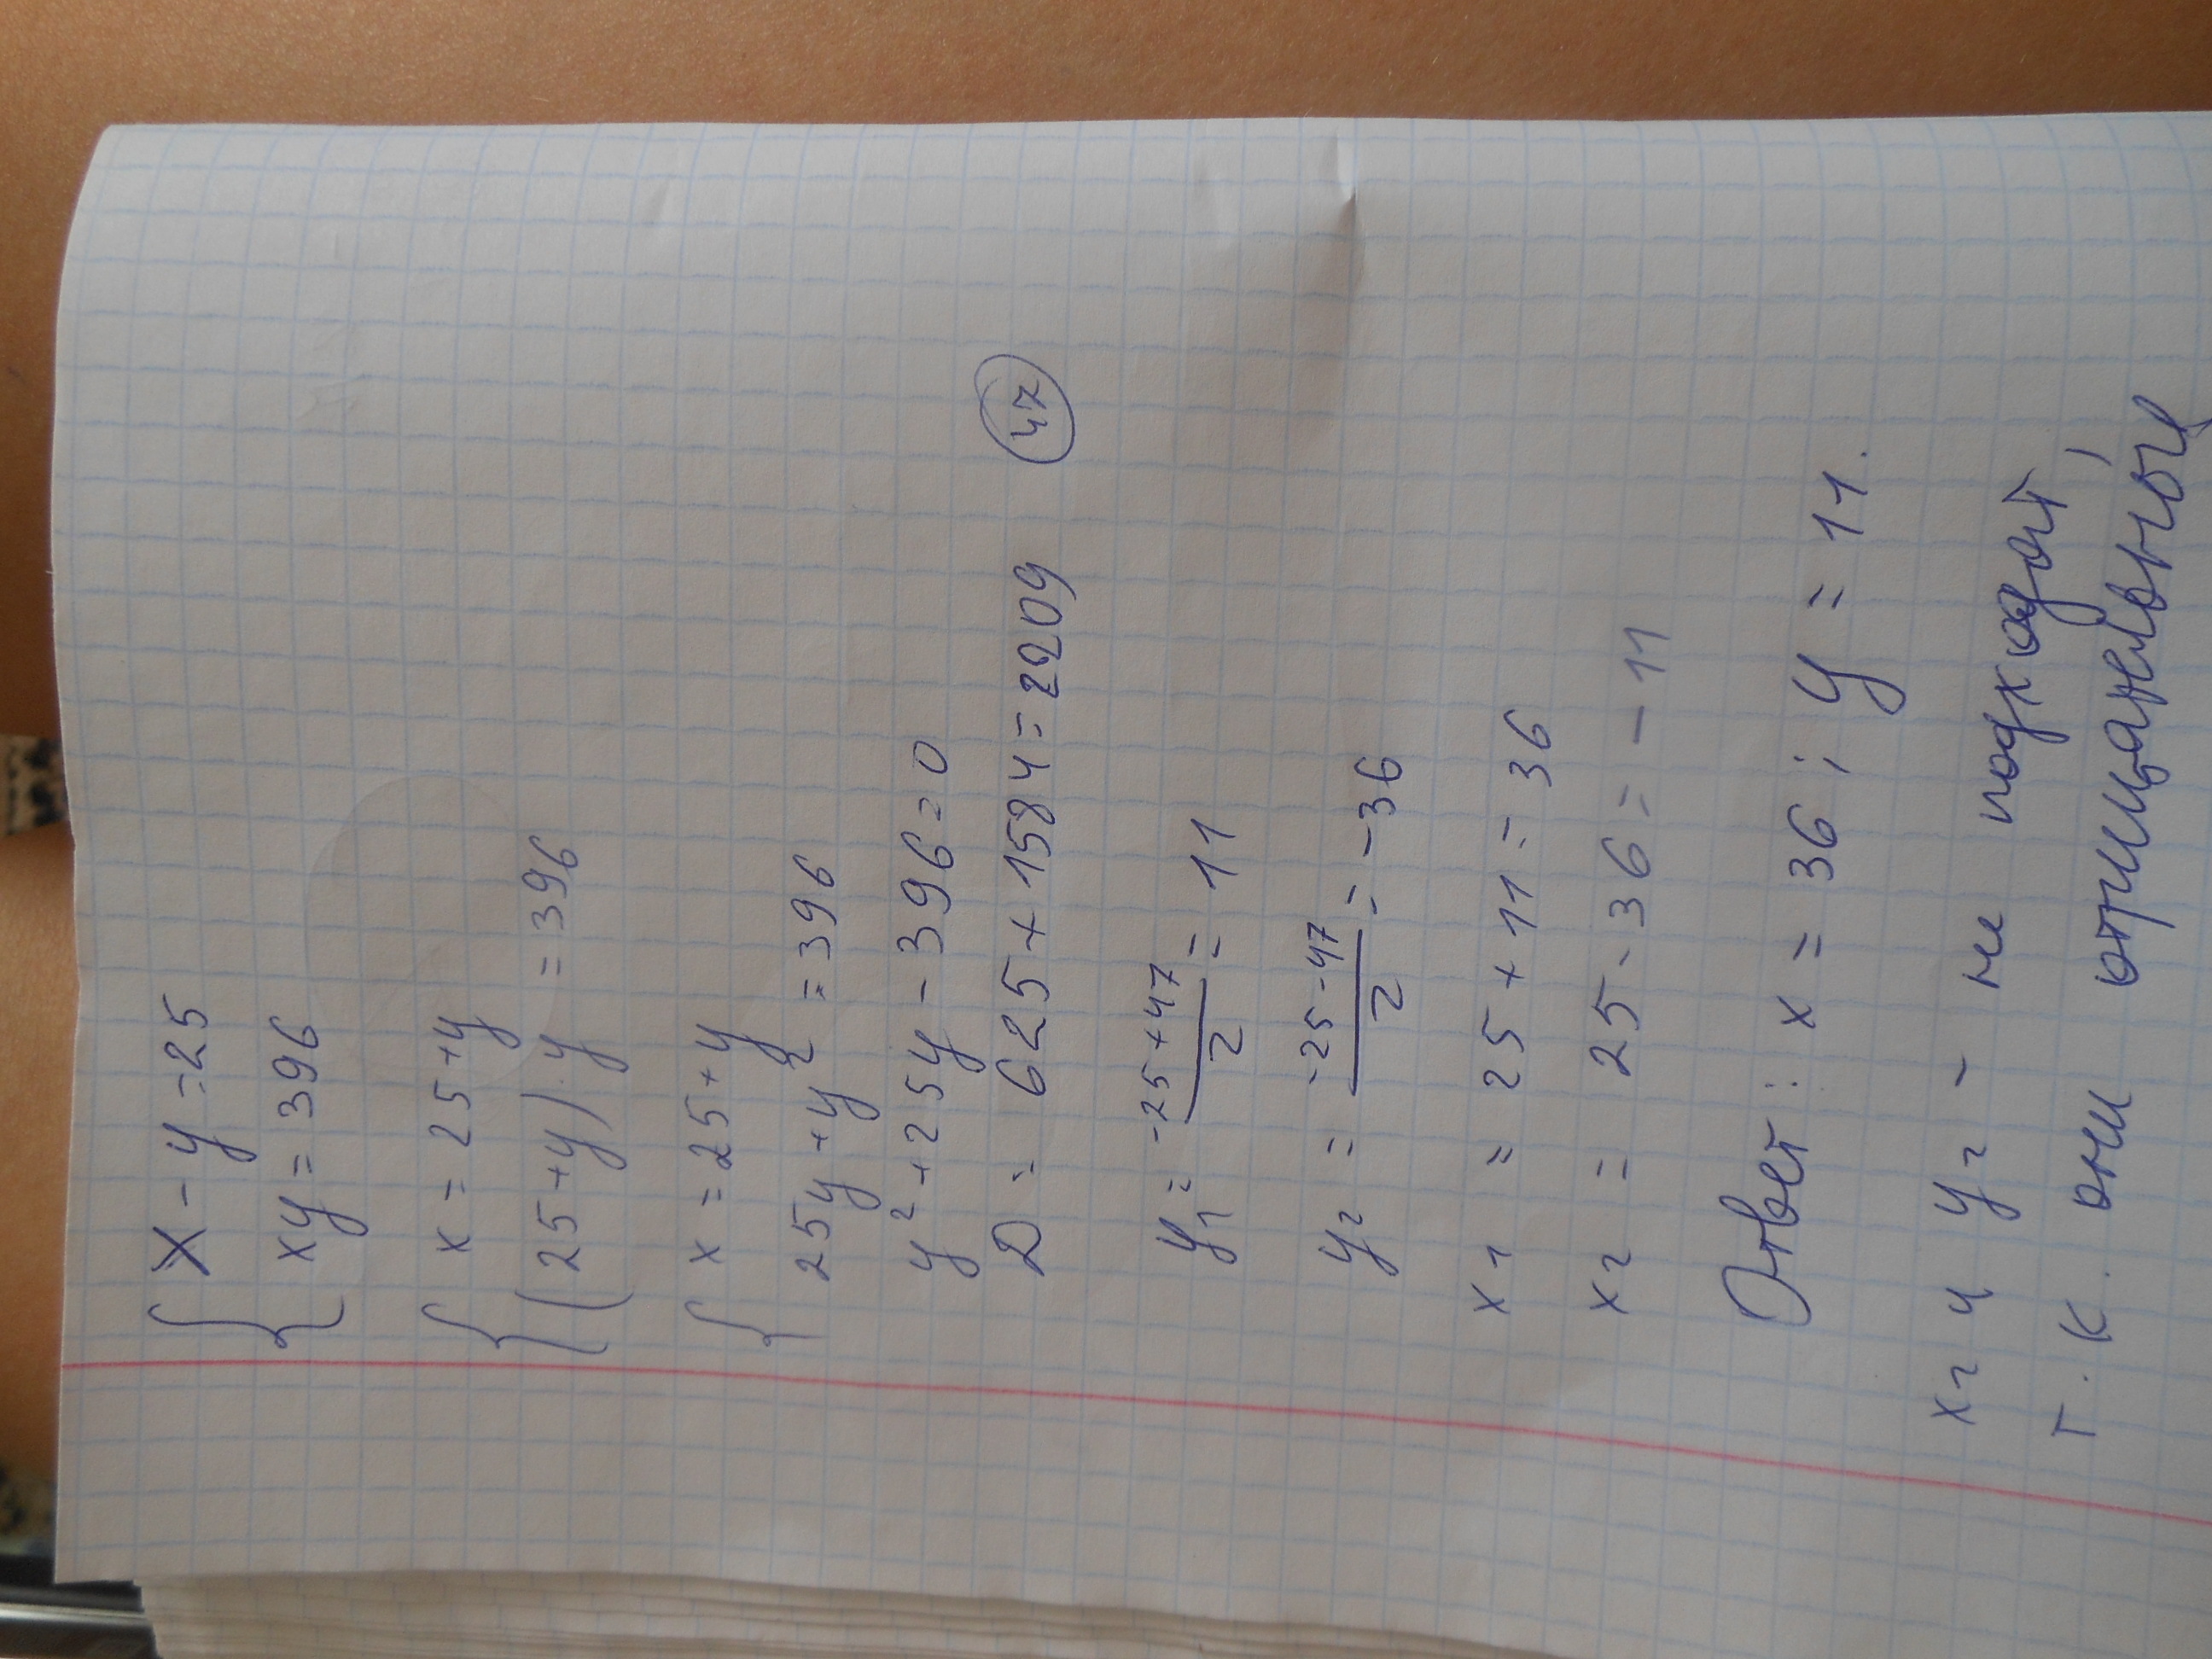 { x - y = 25
xy = 396
{ x = 25 + y
(25 + y) · y = 396
{ x = 25 + y
25y + y² = 396
y² + 25y - 396 = 0
D = 625 + 1584 = 2209 (47)
y₁ = (-25 + 47)/2 = 11
y₂ = (-25 - 47)/2 = -36
x₁ = 25 + 11 = 36
x₂ = 25 - 36 = -11
Ответ: x = 36; y = 11.
x₂ и y₂ - не подходят,
т.к. они отрицательные